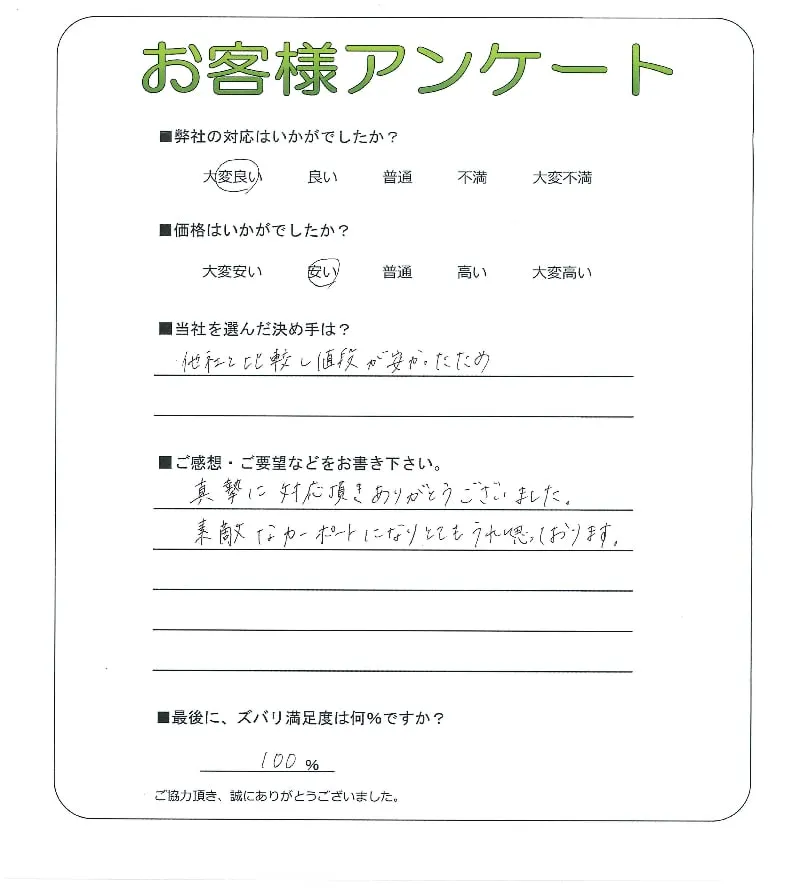 お客様アンケート
■弊社の対応はいかがでしたか？
大変良い 良い 普通 不満 大変不満
■価格はいかがでしたか？
大変安い 安い 普通 高い 大変高い
■当社を選んだ決め手は？
他社と比較し値段が安かったため
■ご感想・ご要望などをお書き下さい。
真摯に対応頂きありがとうございました。
素敵なカーポートになりとてもうれ思っております。
■最後に、ズバリ満足度は何%ですか？
100 %
ご協力頂き、誠にありがとうございました。